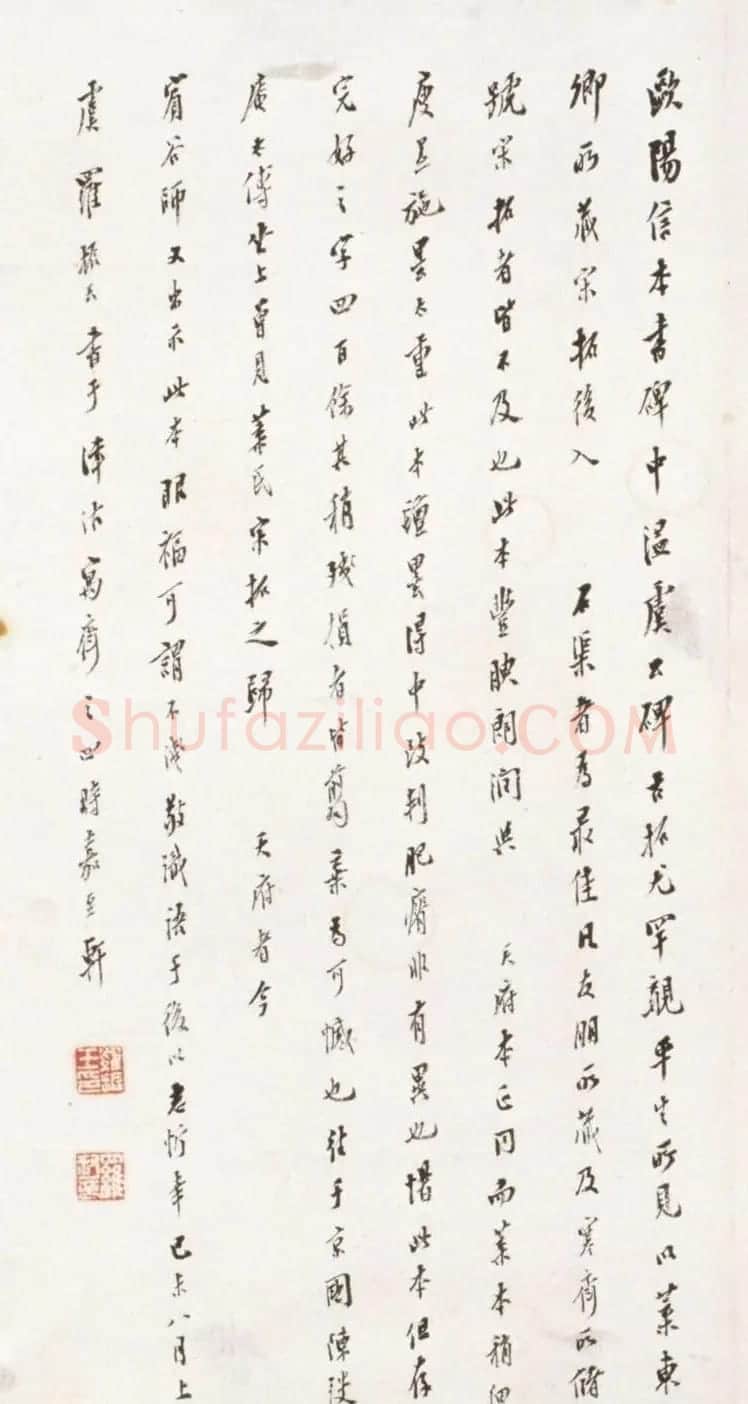 歐陽信本書碑中温虞公碑古拓尤罕覯平生所見以葉東
卿所藏宋拓後入
石渠者爲最佳凡友朋所藏及寒齋所儲
號宋拓者皆不及也此本豐腴朗潤與
天府本正同而葉本稍細
度是施墨太重此本氊墨得中故判肥瘠非有異也惜此本但存
完好之字四百餘其稍殘損者皆翦棄爲可憾也往于京國陳弢
庵太傅坐上曾見葉氏宋拓之歸
天府者今
甯谷師又出示此本眼福可謂不淺敬識語于後以志忻幸己未八月上
虞羅振玉書于津沽寓齋之四時嘉至軒
Shufaziliao.COM